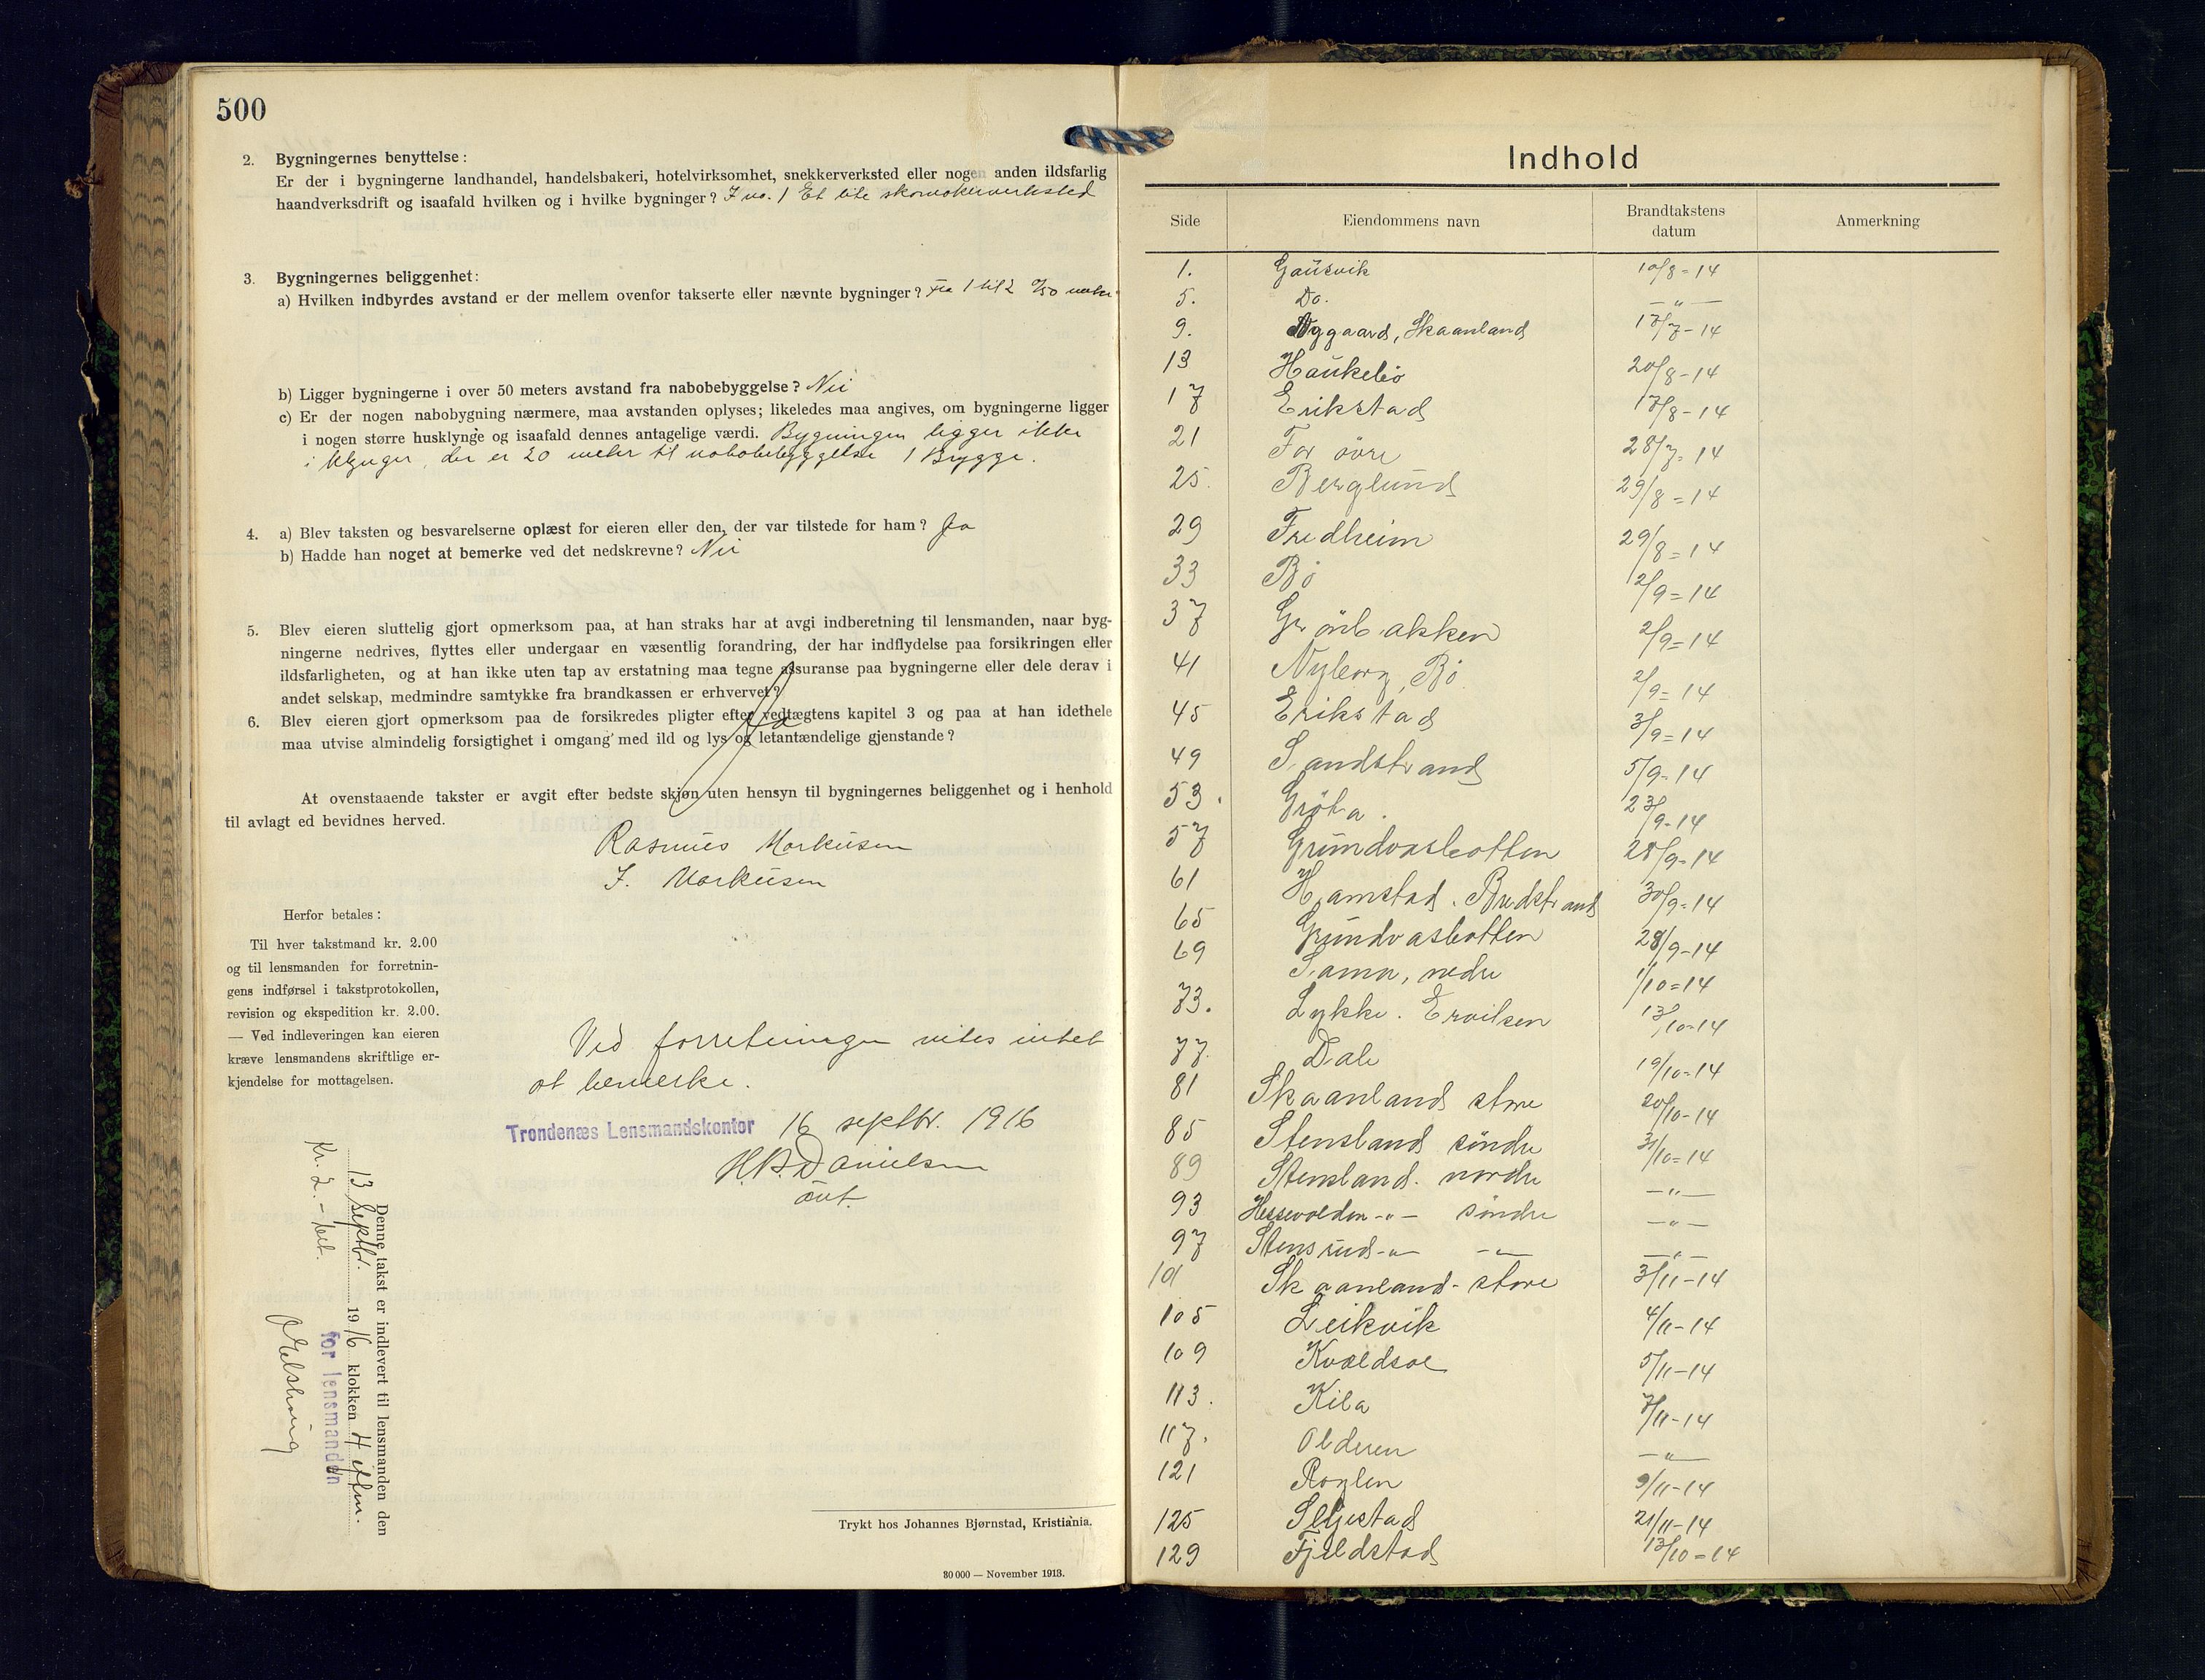 500
2. Bygningernes benyttelse:
Er der i bygningerne landhandel, handelsbakeri, hotelvirksomhet, snekkerverksted eller nogen anden ildsfarlig
haandverksdrift og isaafald hvilken og i hvilke bygninger? I no. 1 Et lite skomakerverksted
3. Bygningernes beliggenhet:
a) Hvilken indbyrdes avstand er der mellem ovenfor takserte eller nævnte bygninger? Fra 1 til 2 %50 meter
b) Ligger bygningerne i over 50 meters avstand fra nabobebyggelse? Nei
c) Er der nogen nabobygning nærmere, maa avstanden oplyses; likeledes maa angives, om bygningerne ligger
i nogen større husklynge og isaafald dennes antagelige værdi. Bygningen ligger ikke
i klynger, der er 20 meter til nabobebyggelse 1 Brygge.
4. a) Blev taksten og besvarelserne oplæst for eieren eller den, der var tilstede for ham? Ja
b) Hadde han noget at bemerke ved det nedskrevne? Nei
5. Blev eieren sluttelig gjort opmerksom paa, at han straks har at avgi indberetning til lensmanden, naar byg-
ningerne nedrives, flyttes eller undergaar en væsentlig forandring, der har indflydelse paa forsikringen eller
ildsfarligheten, og at han ikke uten tap av erstatning maa tegne assuranse paa bygningerne eller dele derav i
andet selskap, medmindre samtykke fra brandkassen er erhvervet?
6. Blev eieren gjort opmerksom paa de forsikredes pligter efter vedtægtens kapitel 3 og paa at han idethele
maa utvise almindelig forsigtighet i omgang med ild og lys og letantændelige gjenstande?
Ja
At ovenstaaende takster er avgit efter bedste skjøn uten hensyn til bygningernes beliggenhet og i henhold
til avlagt ed bevidnes herved.
Rasmus Markusen
J. Markusen
Herfor betales:
Til hver takstmand kr. 2.00
og til lensmanden for forretnin-
gens indførsel i takstprotokollen,
revision og ekspedition kr. 2.00.
— Ved indleveringen kan eieren
kræve lensmandens skriftlige er-
kjendelse for mottagelsen.
Ved forretningen vites intet
at bemerke.
Trondenæs Lensmandskontor 16 septbr. 1916
H.B. Danielsen
Denne takst er indlevert til lensmanden den
13 Septbr. 1916 klokken 4 eftm.
for lensmanden
Kr. 2.- bet.
Trykt hos Johannes Bjørnstad, Kristiania.
30 000 — November 1913.
Indhold
Side Eiendommens navn Brandtakstens datum Anmerkning
1. Gausvik 10/8=14
5. Do. —„—
9. Nygaard, Skaanland 17/7-14
13 Haukebø 20/8-14
17 Erikstad 17/8-14
21 For övre 28/7=14
25. Berglund 29/8=14
29 Fredheim 29/8=14
33 Bö 2/9=14
37 Grönbakken 2/9=14
41 Nyborg, Bö 2/9=14
45 Erikstad 3/9=14
49 Sandstrand 5/9=14
53. Gröta. 23/9-14
57 Grundvasbotten 28/9-14
61 Hamstad. Bredstrand 30/9=14
65 Grundvasbotten 28/9-14
69 Sama, nedre 1/10=14
73. Lykke. 13/10-14
77. Dale 19/10-14
81 Skaanland store 20/10-14
85 Stensland söndre 31/10=14
89 Stensland. nordre —„—
93 Hessevolden -„- söndre —„—
97 Stensrud -„- -„- —„—
101 Skaanland- store 3/11-14
105 Leikvik 4/11-14
109 Kvældsoe 5/11-14
113. Kila 7/11-14
117. Olderen —„—
121 Roglen 9/11-14
125 Seljestad 21/11-14
129 Fjeldstad 13/10=14